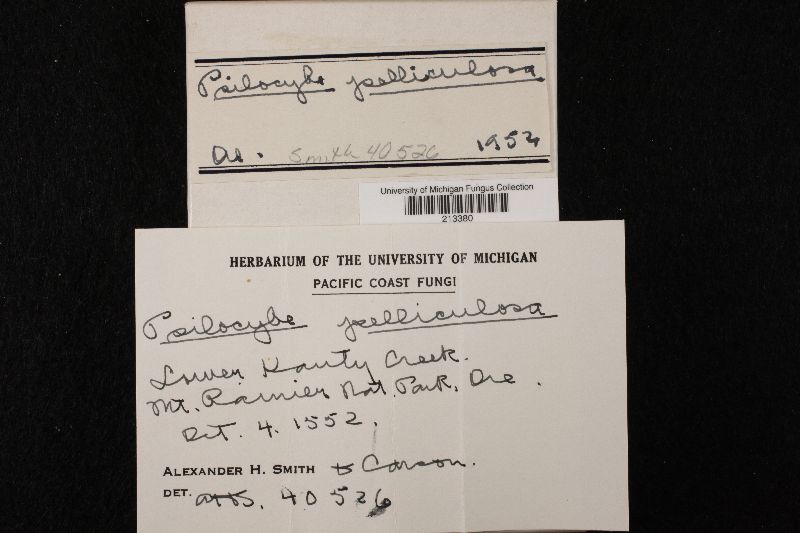 Psilocybe pelliculosa
Smith 40526 1952
University of Michigan Fungus Collection
213380
HERBARIUM OF THE UNIVERSITY OF MICHIGAN
PACIFIC COAST FUNGI
Psilocybe pelliculosa
Lower Creek.
Mt. Rainier Nat. Park, Ore.
Oct. 4. 1552.
ALEXANDER H. SMITH Carson.
DET. AHS. 40526